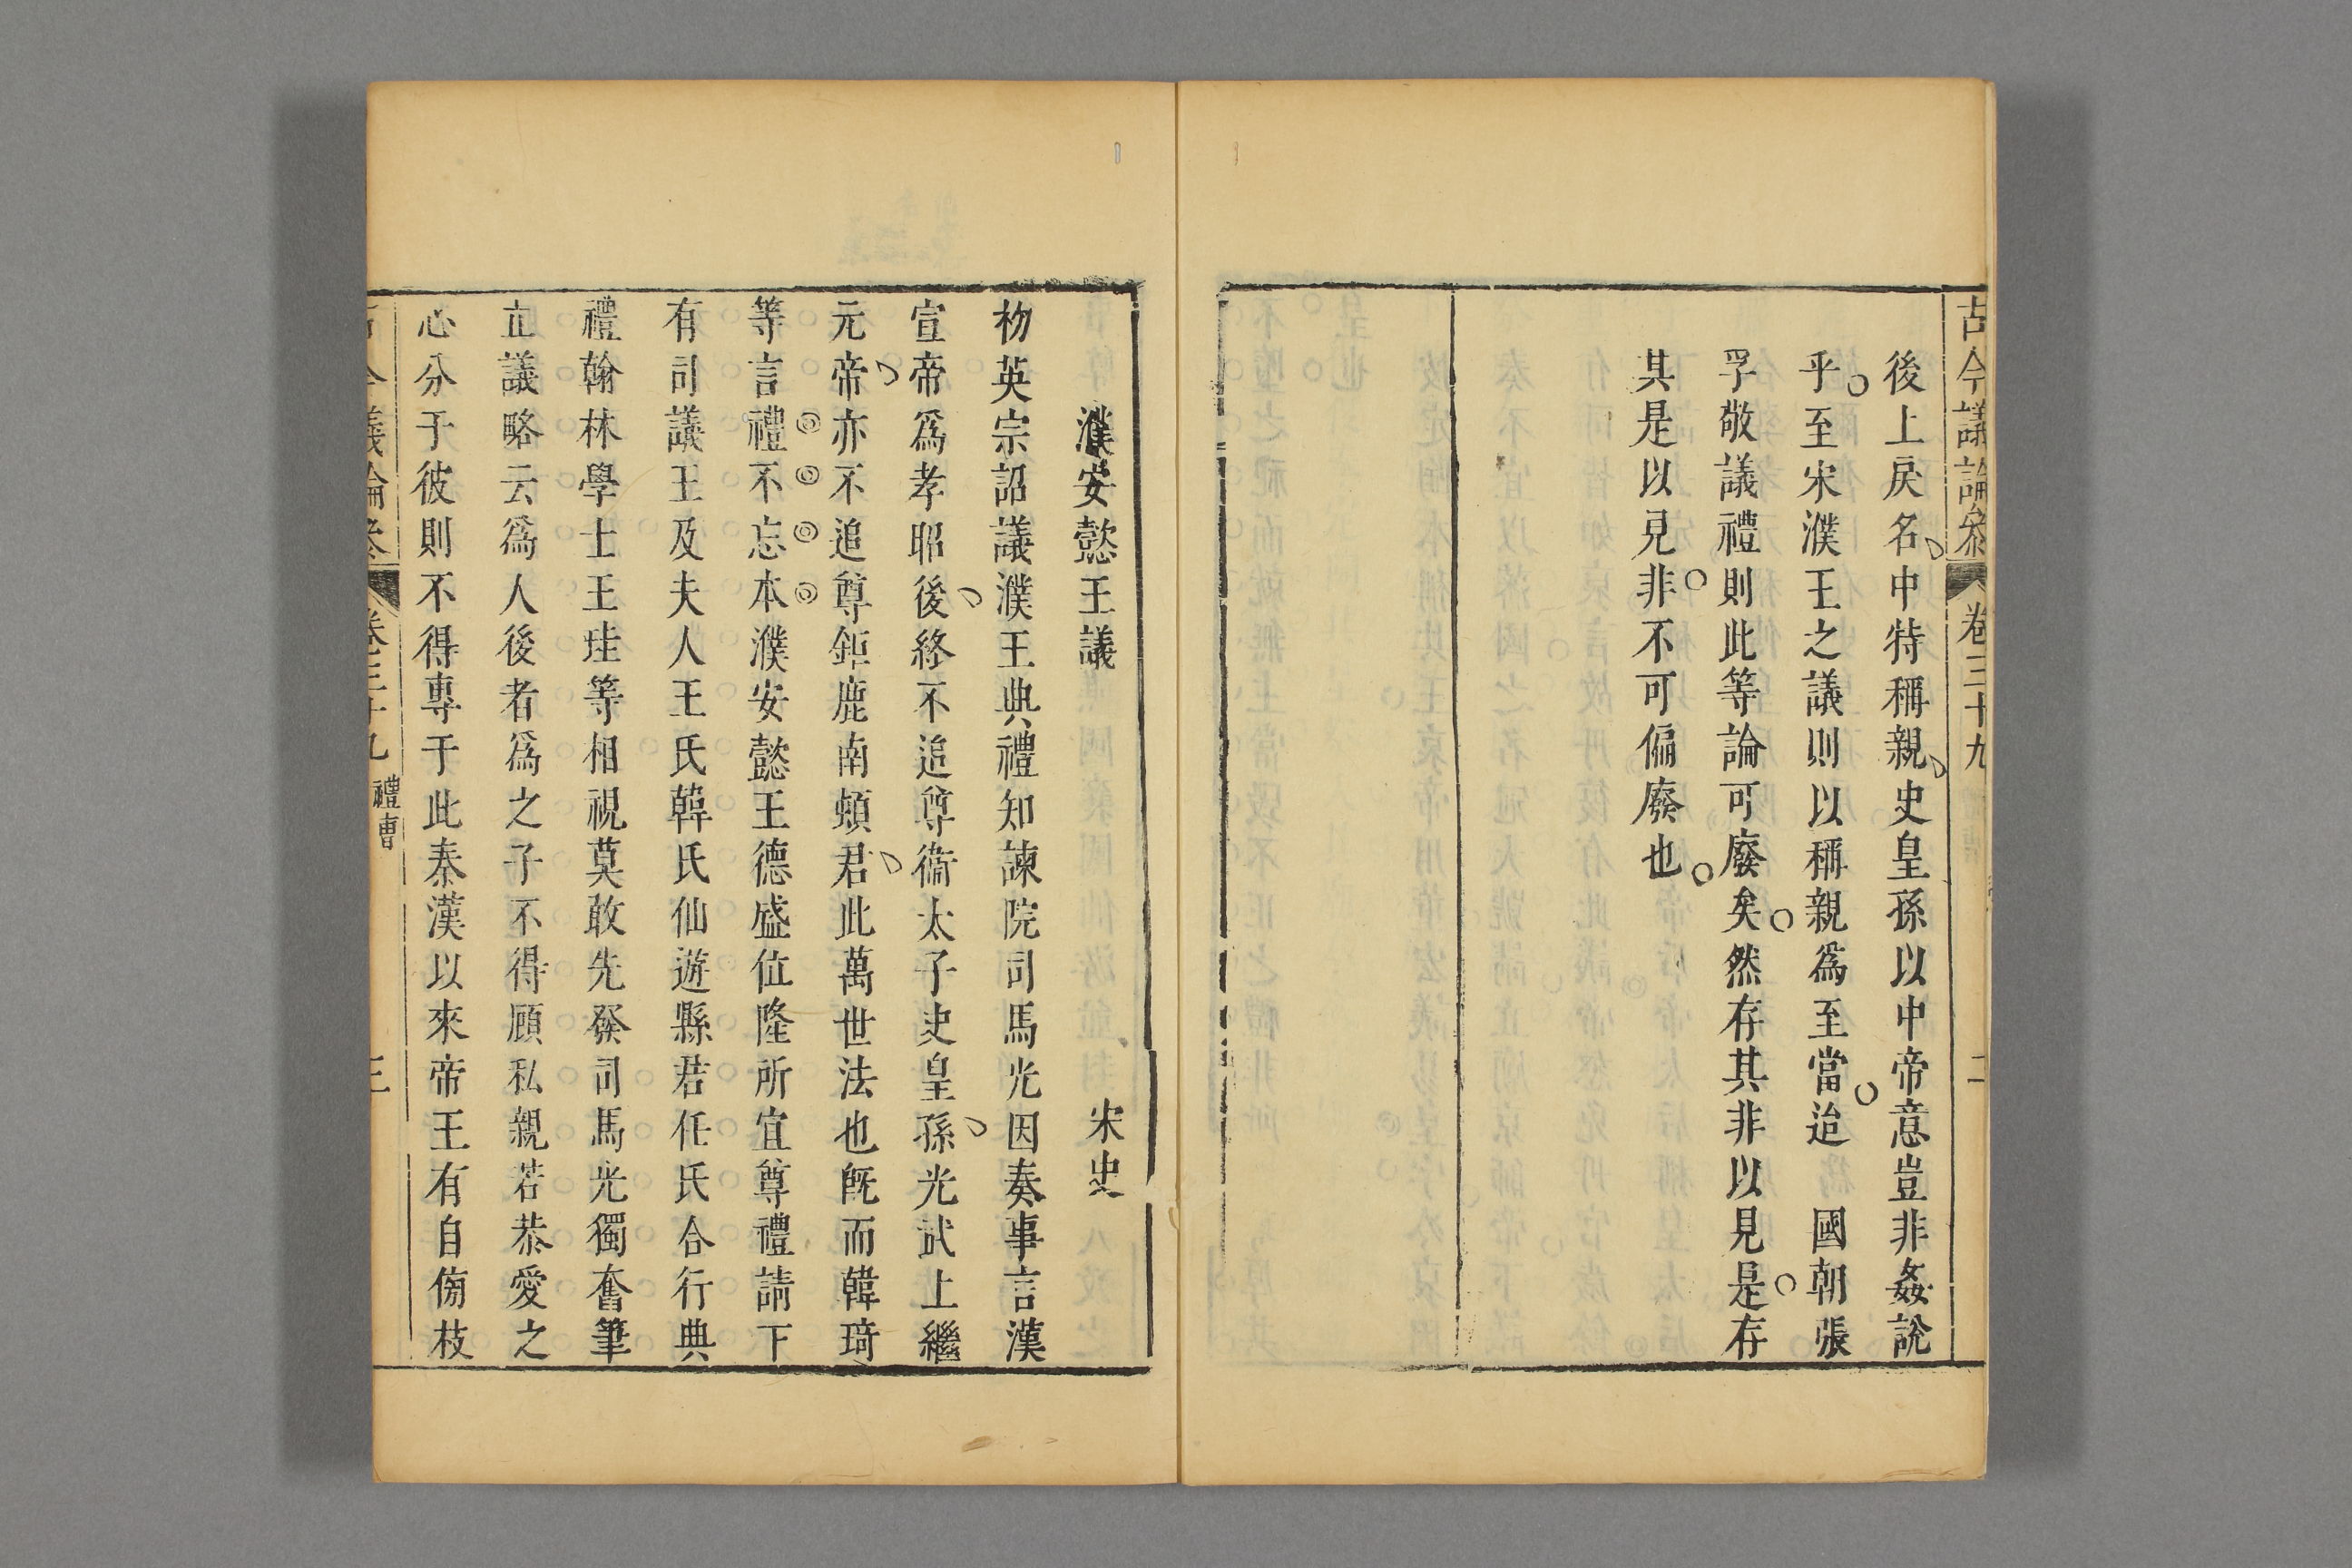 古今議論參
卷三十九
二
後上戾名中特稱親史皇孫以中帝意豈非姦說
乎至宋濮王之議則以稱親爲至當迨 國朝張
孚敬議禮則此等論可廢矣然存其非以見是存
其是以見非不可偏廢也
濮安懿王議 宋史
初英宗詔議濮王典禮知諫院司馬光因奏事言漢
宣帝爲孝昭後終不追尊衞太子史皇孫光武上繼
元帝亦不追尊鉅鹿南頓君此萬世法也旣而韓琦
等言禮不忘本濮安懿王德盛位隆所宜尊禮請下
有司議王及夫人王氏韓氏仙遊縣君任氏合行典
禮翰林學士王珪等相視莫敢先發司馬光獨奮筆
立議略云爲人後者爲之子不得顧私親若恭愛之
心分于彼則不得專于此秦漢以來帝王有自傍枝
古今議論參
卷三十九
禮曹
三